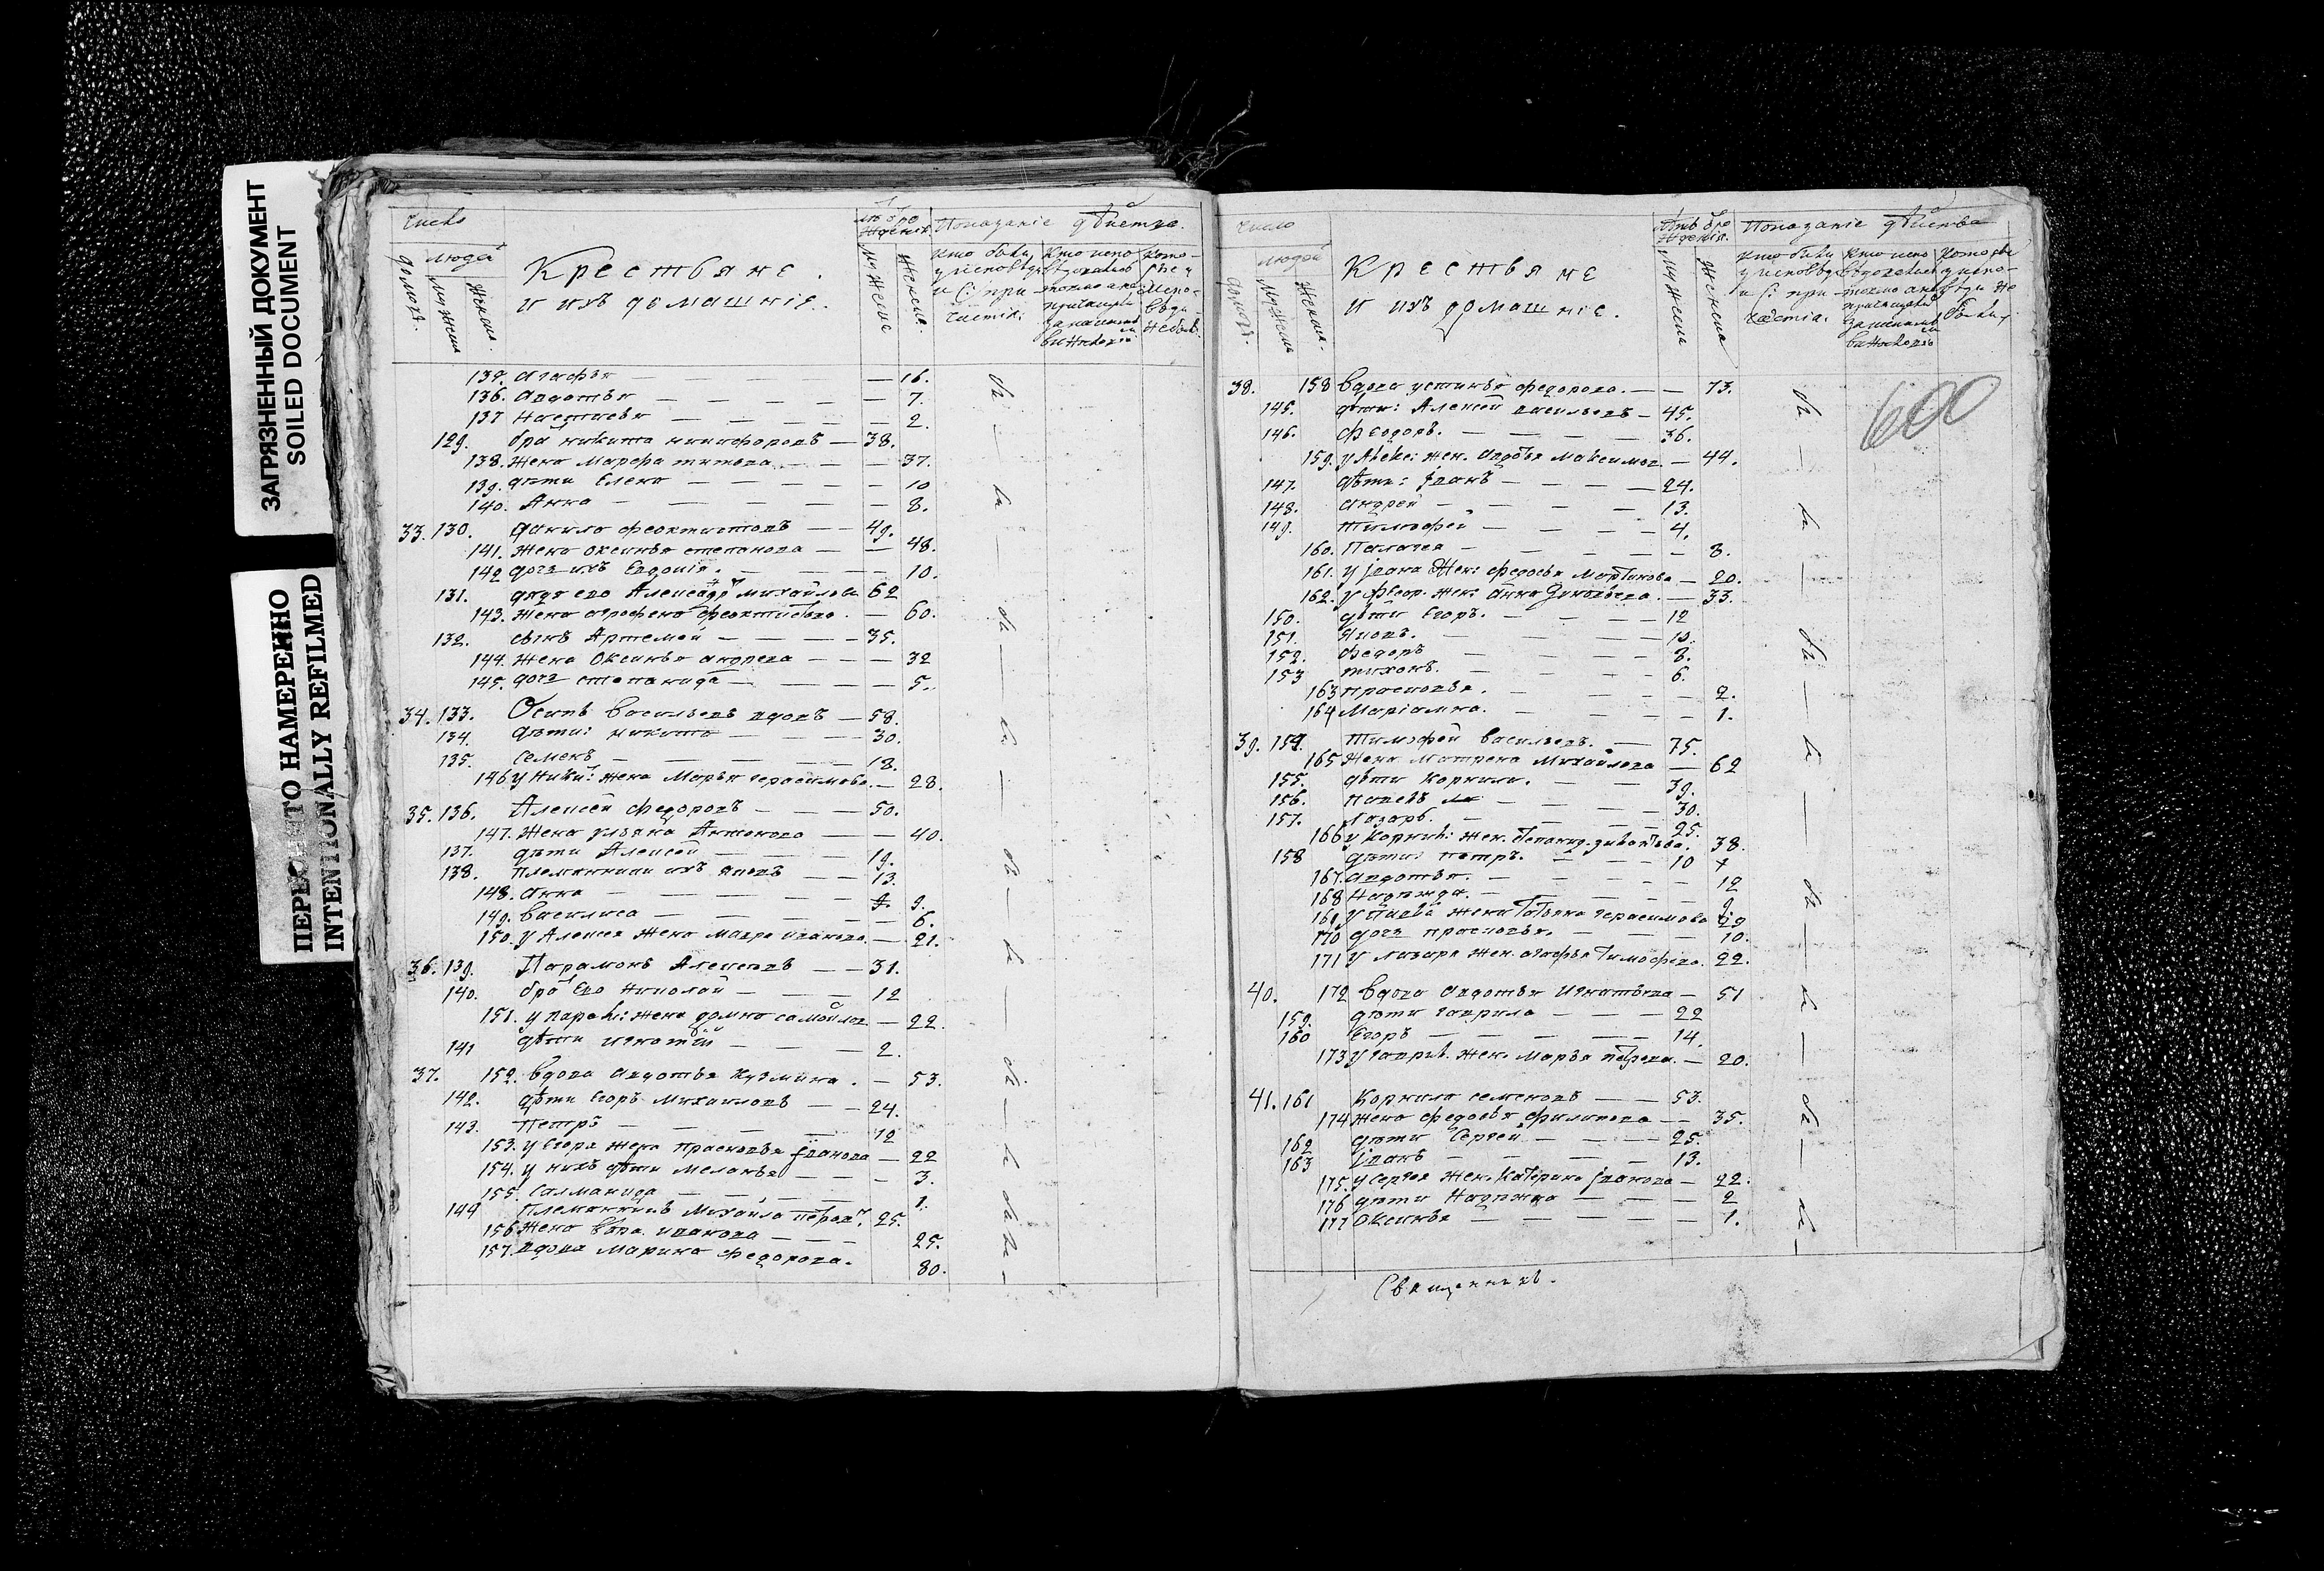 ЗАГРЯЗНЕННЫЙ ДОКУМЕНТ
SOILED DOCUMENT
ПЕРЕСНЯТО НАМЕРЕННО
INTENTIONALLY REFILMED
Число
людей
домовъ.
мужеска
женска.
Крестьяне.
и ихъ домашніе.
мужеска
женска.
Показаніе действа.
135. агафья — 16.
136. авдотья — 7.
137 настасья — 2.
129. бра никита никифоровъ — 38.
138. жена марфа титова — 37.
139. дети Елена — 10
140. Анна — 8.
33. 130. данило феоктистовъ — 49.
141. жена оксинья степанова — 48.
142 дочь ихъ Евдокія. — 10.
131. дядя его Александръ михайловъ 62
143. жена аграфена феоктистова. — 60.
132. сынъ Артемей — 35.
144. жена Оксинья андреева — 32
145. дочь степанида — 5.
34. 133. Осипъ васильевъ вдовъ — 58.
134. дети: никита — 30.
135. Семенъ — 18.
146 у ники: жена Марья герасимова. — 28.
35. 136. Алексей федоровъ — 50.
147. жена ульяна Антонова — 40.
137. дети Алексей — 19.
138. племянники ихъ яковъ — 13.
148. анна — 9.
149. василиса — 6.
150. у Алексея жена мавра иванова. — 21.
36. 139. Парамонъ Алексеевъ — 31.
140. бра Его николай — 12
151. у парам: жена домна самойлов — 22.
141 дети игнатій — 2.
37. 152. вдова авдотья кузмина. — 53.
142. дети Егоръ михаиловъ — 24.
143. петръ — 12
153. у Егора жена прасковья іванова — 22
154. у нихъ дети меланья — 3.
155. Саламанида — 1.
144 племянникъ михайла петров. 25.
156 жена вера иванова — 25.
157. вдова марина федорова. 80.
число
людей
мужеска
женска.
Крестьяне
и ихъ домашніе.
мужеска
женска
Показаніе действа
600
38. 158 вдова устинья федорова. — 73.
145. дети: Алексей васильевъ — 45.
146. Феодоръ. — 36.
159. у Алекс: жен. авдотья максимов. — 44.
147. дети: іванъ — 24.
148. андрей — 13.
149. тимофей — 4.
160. Палагея — 8.
161. у івана жен: федосья мартинова — 20.
162. у Феодр. жен: анна Зиновьева. — 33.
150. дети Егоръ. — 12
151. Яковъ. — 10.
152. федоръ — 8.
153 тихонъ. — 6.
163 прасковья. — 2.
164 Маріамна. — 1.
39. 154. тимофей васильевъ. — 75.
165 жена матрена михайлова — 62
155. дети корнила. — 39.
156. павелъ — 30.
157. лазарь. — 25.
166 у корнил: жен. степанид. 38.
158 дети: петръ. — 10
167. авдотья. — 12
168 надежда. — 9.
169 у павла жена татьяна герасимова 29
170 дочь прасковья. — 10.
171 у лазаря жен. агафья тимофеева. 22.
40. 172 вдова авдотья игнатьева — 51
159. дети гаврила — 22
160 Егоръ — 14.
173 у гаврил. жен. марья петрова. — 20.
41. 161 Корнило семеновъ — 53.
174 жена федосья филипова — 35.
162 дети Сергей — 25.
163 іванъ — 13.
175. у сергея жен. катерина іванова — 22.
176 дети надежда — 2
177 Оксинья — 1.
Священникъ.